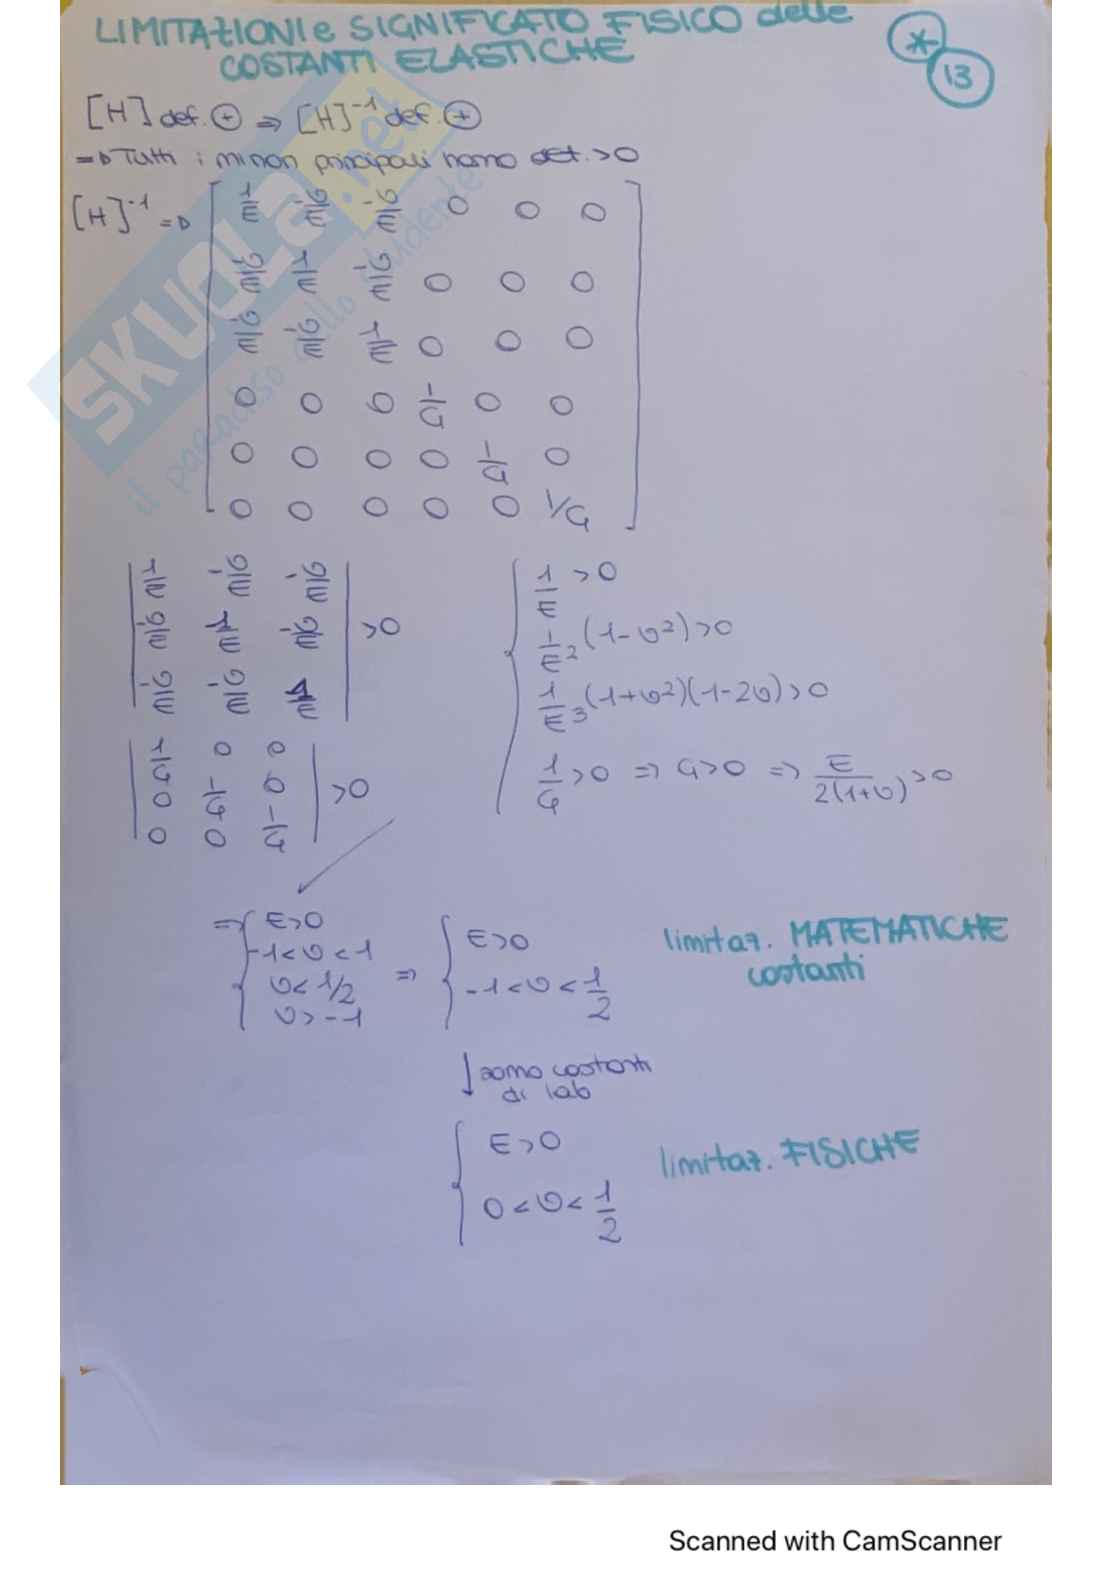 LIMITAZIONI e SIGNIFICATO FISICO delle
COSTANTI ELASTICHE
* 13
[H] def. ⊕ ⇒ [H]⁻¹ def. ⊕
⇒ Tutti i minori principali hanno det. >0
[H]⁻¹ ⇒ [ 1/E -υ/E -υ/E 0 0 0
-υ/E 1/E -υ/E 0 0 0
-υ/E -υ/E 1/E 0 0 0
0 0 0 1/G 0 0
0 0 0 0 1/G 0
0 0 0 0 0 1/G ]
| 1/E -υ/E -υ/E |
| -υ/E 1/E -υ/E | >0
| -υ/E -υ/E 1/E |
| 1/G 0 0 |
| 0 1/G 0 | >0
| 0 0 1/G |
{ 1/E >0
1/E² (1-υ²) >0
1/E³ (1+υ²)(1-2υ) >0
1/G >0 ⇒ G>0 ⇒ E/2(1+υ) >0
⇒ { E>0
-1<υ<1
υ<1/2
υ>-1
⇒ { E>0
-1<υ<1/2
limitaz. MATEMATICHE
costanti
↓ sono costanti
di lab
{ E>0
0<υ<1/2
limitaz. FISICHE
SKUOLA.net
il paradiso dello studente
Scanned with CamScanner